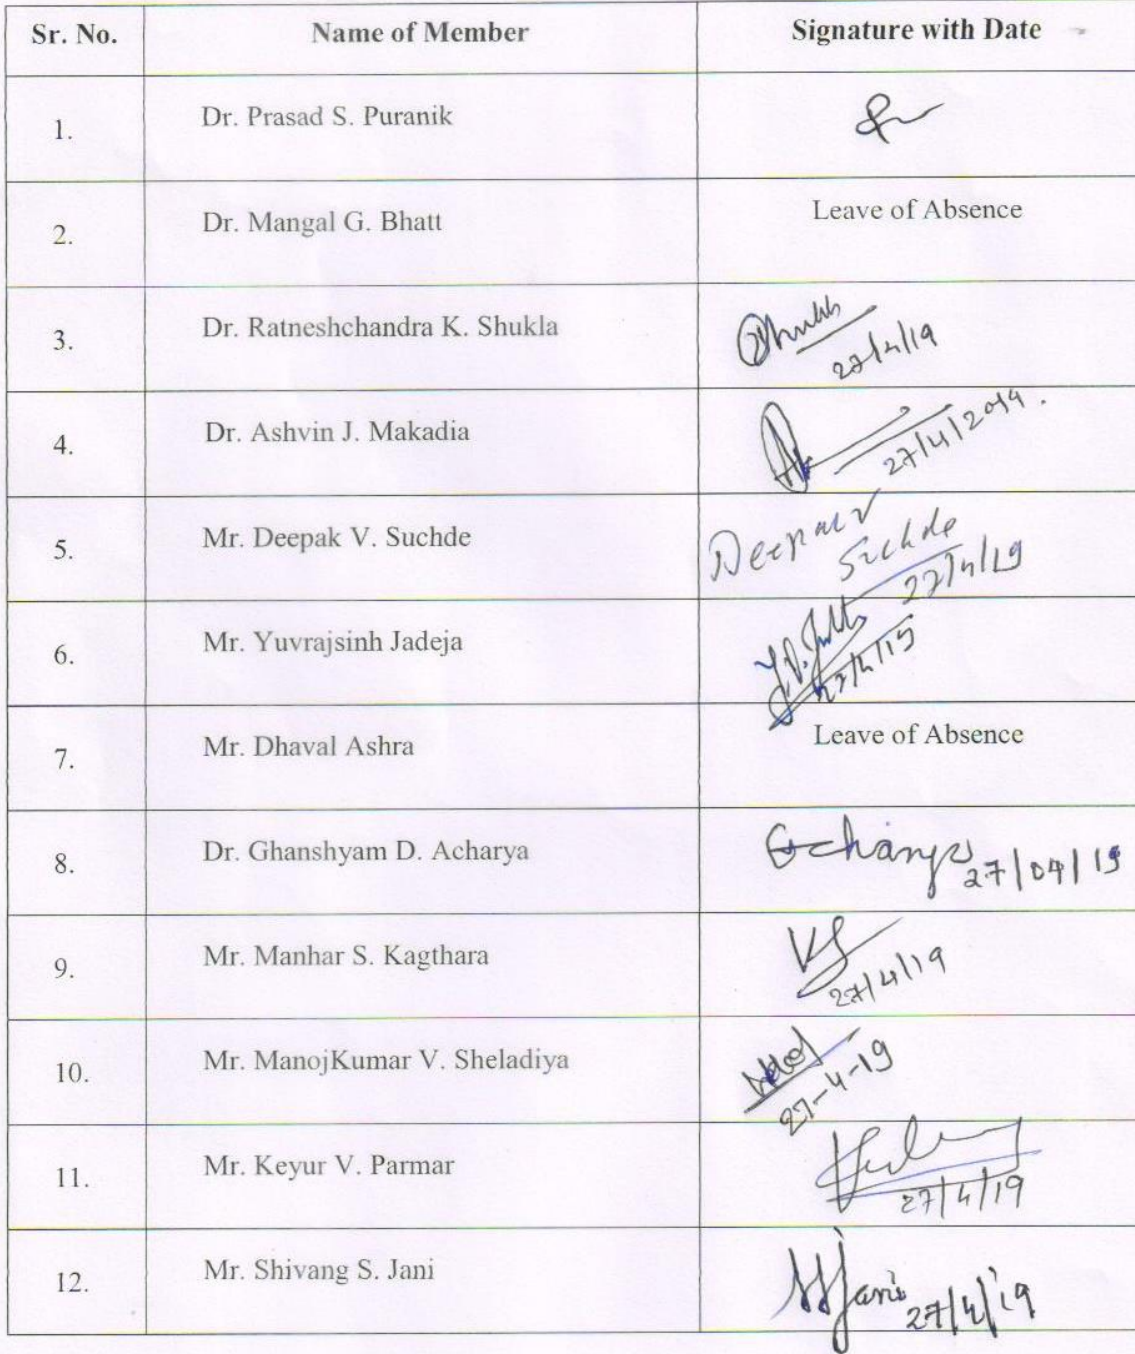 Sr. No. Name of Member Signature with Date
1. Dr. Prasad S. Puranik
2. Dr. Mangal G. Bhatt Leave of Absence
3. Dr. Ratneshchandra K. Shukla
27/4/19
4. Dr. Ashvin J. Makadia
27/4/2019.
5. Mr. Deepak V. Suchde Deepak V
Suchde
27/4/19
6. Mr. Yuvrajsinh Jadeja
27/4/19
7. Mr. Dhaval Ashra Leave of Absence
8. Dr. Ghanshyam D. Acharya
27/04/19
9. Mr. Manhar S. Kagthara
27/4/19
10. Mr. ManojKumar V. Sheladiya
27-4-19
11. Mr. Keyur V. Parmar
27/4/19
12. Mr. Shivang S. Jani Jani
27/4/19